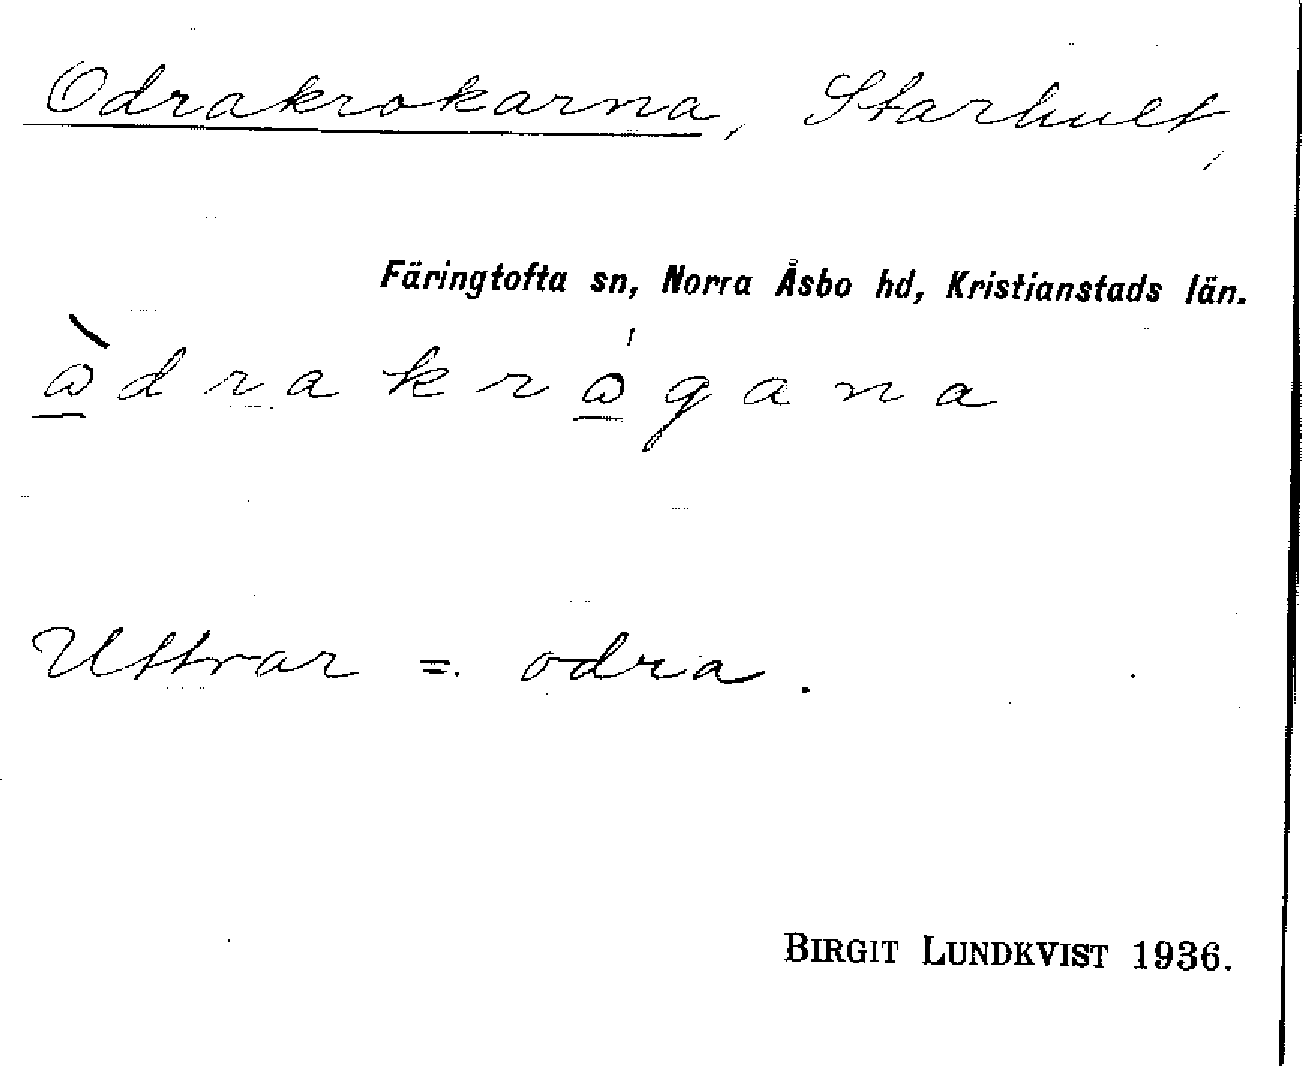 Odrakrokarna, Starhult,
Färingtofta sn, Norra Åsbo hd, Kristianstads län.
ὼ̲drakrώ̲gana
Uttrar = odra.
BIRGIT LUNDKVIST 1936.